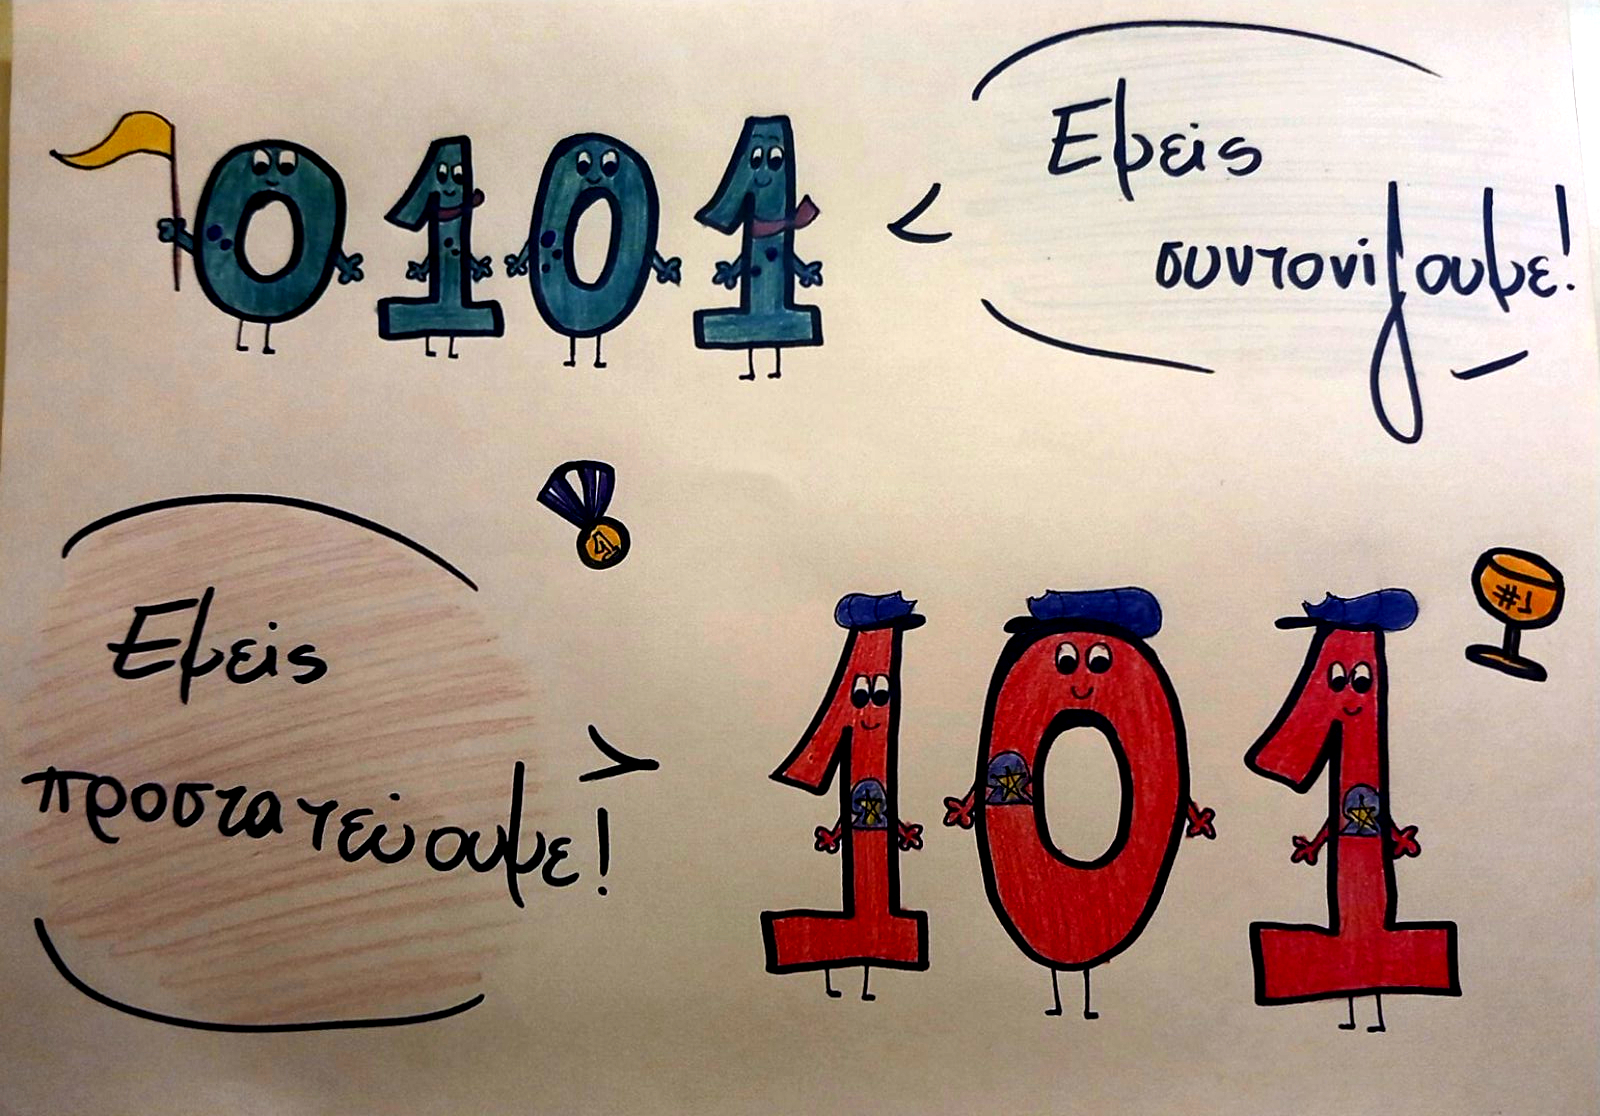 0101
Εμείς
συντονίζουμε!
Εμείς
προστατεύουμε!
1
#1
101